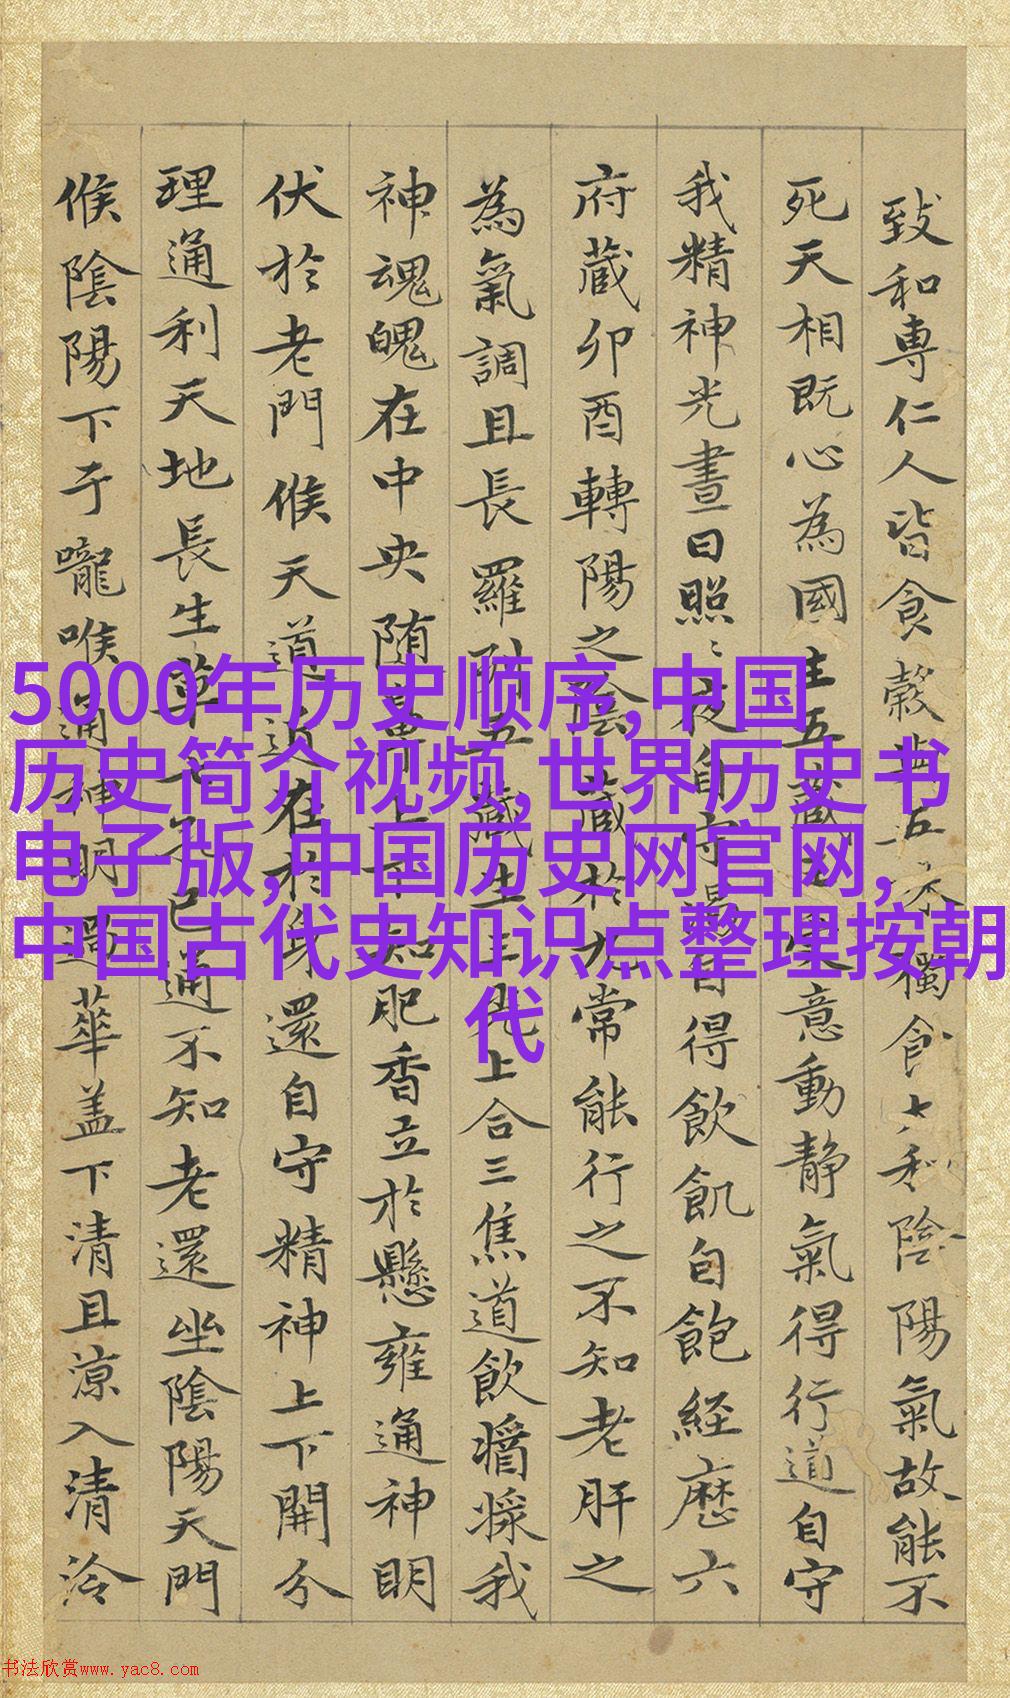 致和專仁人皆食穀與五味獨食太和陰陽氣故能不
死天相既心為國主五藏王意動靜氣得行道自守
我精神光晝日照〻夜自守渴自得飲飢自飽經歷六
府藏卯酉轉陽之陰藏於九常能行之不知老肝之
為氣調且長羅列五藏生三光上合三焦道飲醬漿我
神魂魄在中央随鼻上下知肥香立於懸雍通神明
伏於老門候天道近在於身還自守精神上下開分
理通利天地長生草七孔已通不知老還坐陰陽天門
候陰陽下于嚨喉通神明過華盖下清且涼入清泠
5000年历史顺序,中国
历史简介视频,世界历史书
电子版,中国历史网官网,
中国古代史知识点整理按朝
代
书法欣赏www.yac8.com